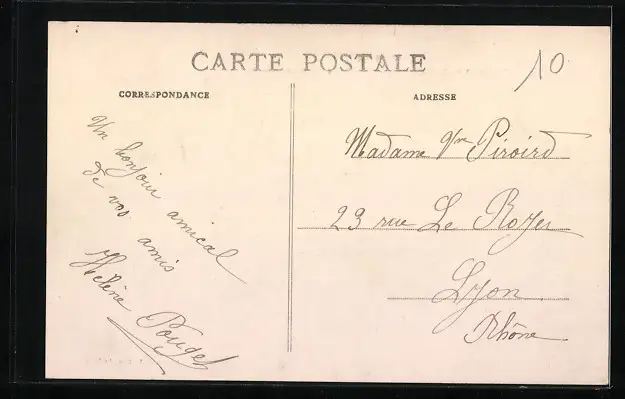 CARTE POSTALE
10
CORRESPONDANCE
ADRESSE
Un bonjour amical
de vos amis
Hélène Pouget
Madame Vve Piroird
23 rue Le Royer
Lyon
Rhône